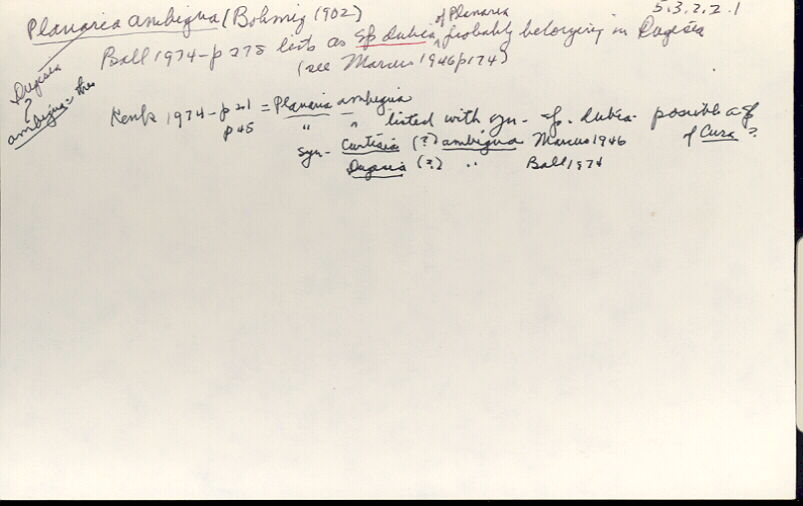 5.3.2.2.1
Planaria ambigua (Bohmig 1902)
of Planaria
Ball 1974-p 278 lists as sp dubia ^ probably belonging in Dugesia
(see Marcus 1946 p174)
Dugesia
?
ambigua =
Kenk 1974-p 21 = Planaria ambigua
p 45 " " listed with syn- sp. dubia- possible a sp
of Cura ?
syn- Curtisia (?) ambigua Marcus 1946
Dugesia (?) " Ball 1974